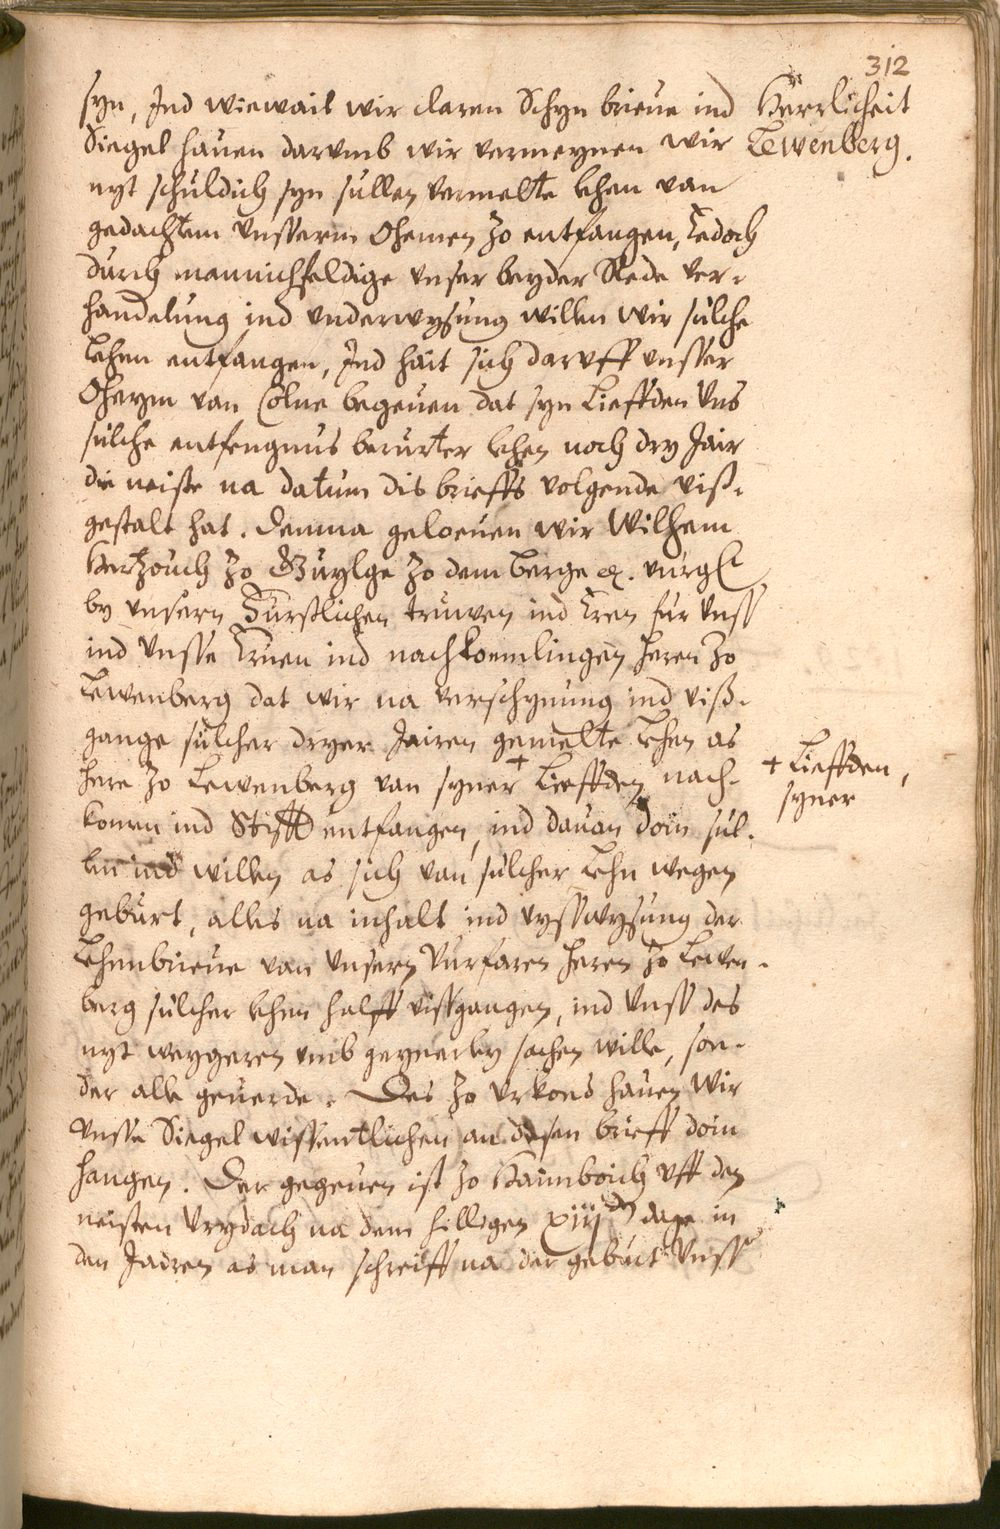 312
syn, Ind wiewail wir claren Schyn brieue ind
Siegel hauen darumb wir vermeynen wir
nyt schuldich syn sullen vermelte lehen van
gedachtem vnsserm Ohemen zo entfangen, Jedoch
durch mannichfeldige vnser beyder Rede ver-
handelung ind vnderwysung willen wir sulche
Lehen entfangen, Ind hait sich daruff vnsser
Oheym van Colne begeuen dat syn Lieffden vns
sulche entfengnus berurter lehen noch dry Jair
die neiste na datum dis brieffs volgende viß-
gestalt hat. Demna geloeuen wir Wilhem
Hertzouch zo Guylge zo dem Berge &. vurgl
by vnsern Furstlichen truwen ind Eren fur vnss
ind vnsse Eruen ind nachkoemlingen heren zo
Lewenberg dat wir na verschynung ind viß-
gange sulcher dryer Jairen gemelte Lehen as
here zo Lewenberg van syner + Lieffden nach-
komen ind Stifft entfangen, ind dauan doin sul-
len ind willen as sich van sulcher Lehn wegen
geburt, alles na inhalt ind vysswysung der
Lehenbrieue van vnsern Vurfaren heren zo Lewen-
berg sulcher lehen halff vissgangen, ind vnss des
nyt weygeren vmb geynerley sachen wille, son-
der alle geuerde. Des zo vrkond hauen wir
vnsse Siegel wissentlichen an desen brieff doin
hangen. Der gegeuen ist zo Hamboich vff den
neisten Vrydach na dem hilligen xiij dage in
den Jairen as man schreiff na der geburt vnss
Herrlicheit
Lewenberg.
+ Lieffden,
syner